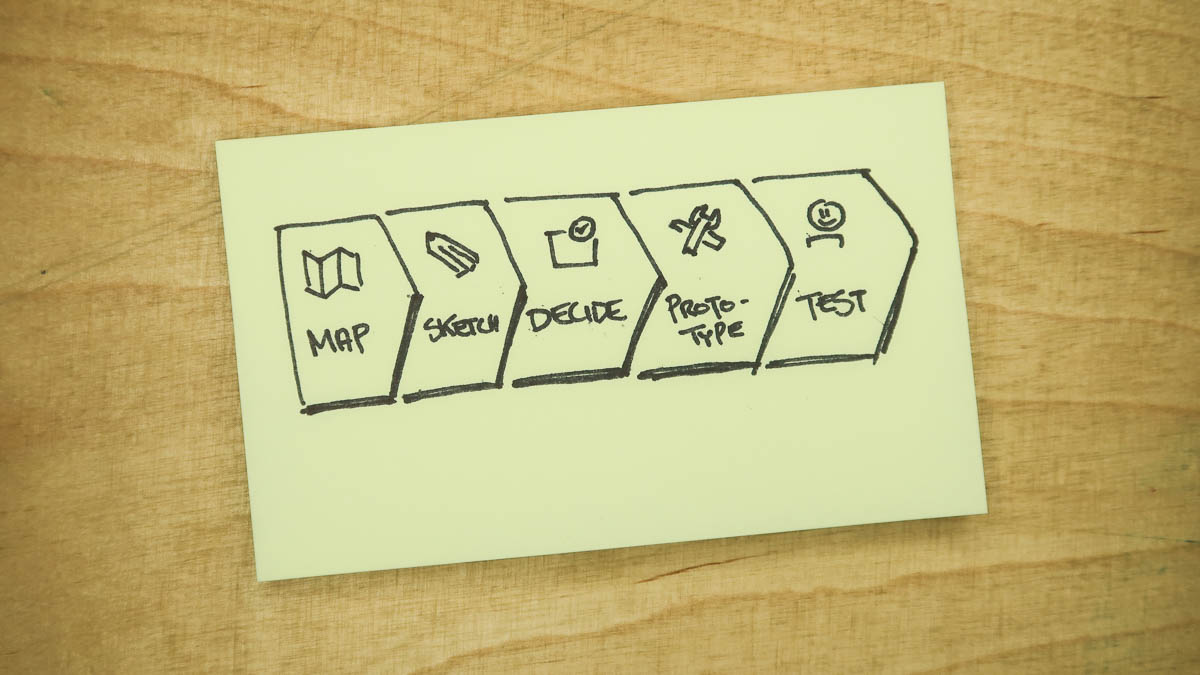 MAP
SKETCH
DECIDE
PROTO-
TYPE
TEST